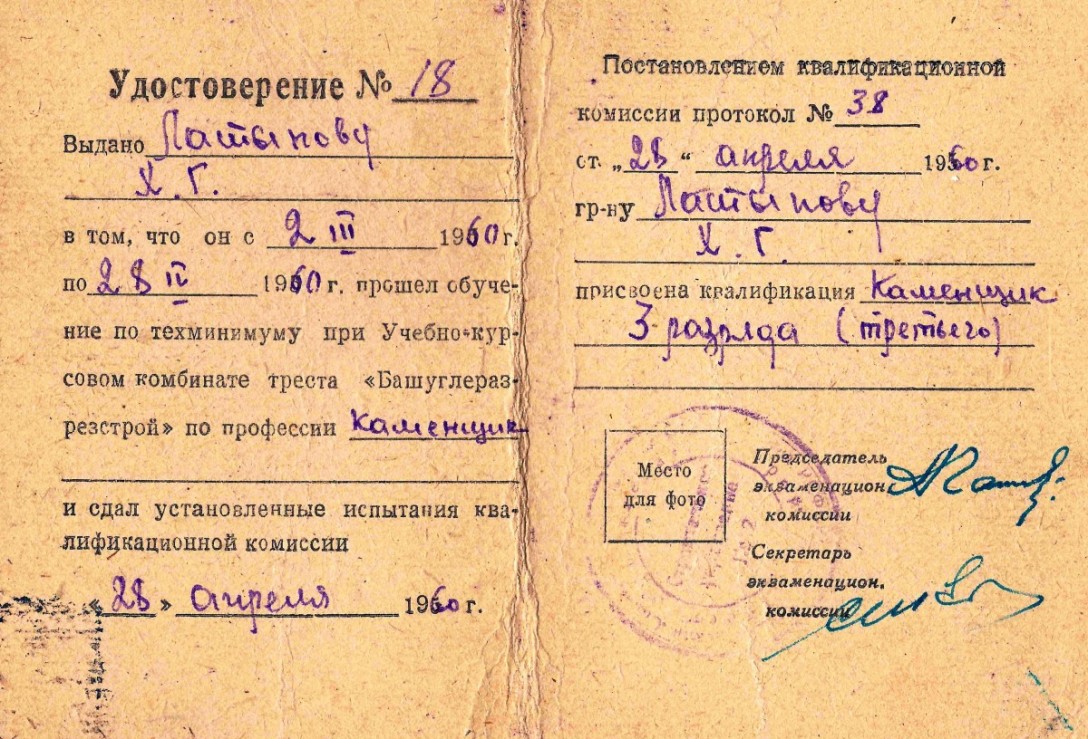 Удостоверение № 18
Выдано Латыпову
Х. Г.
в том, что он с 2 III 1960г.
по 28 IV 1960г. прошел обуче-
ние по техминимуму при Учебно-кур-
совом комбинате треста «Башуглераз-
резстрой» по профессии Каменщик
и сдал установленные испытания ква-
лификационной комиссии
«28» апреля 1960г.
Постановлением квалификационной
комиссии протокол № 38
от „28“ апреля 1960г.
гр-ну Латыпову
Х. Г.
присвоена квалификация Каменщик
3 разряда (третьего)
Место
для фото
Председатель
экзаменацион.
комиссии
Секретарь
экзаменацион.
комиссии